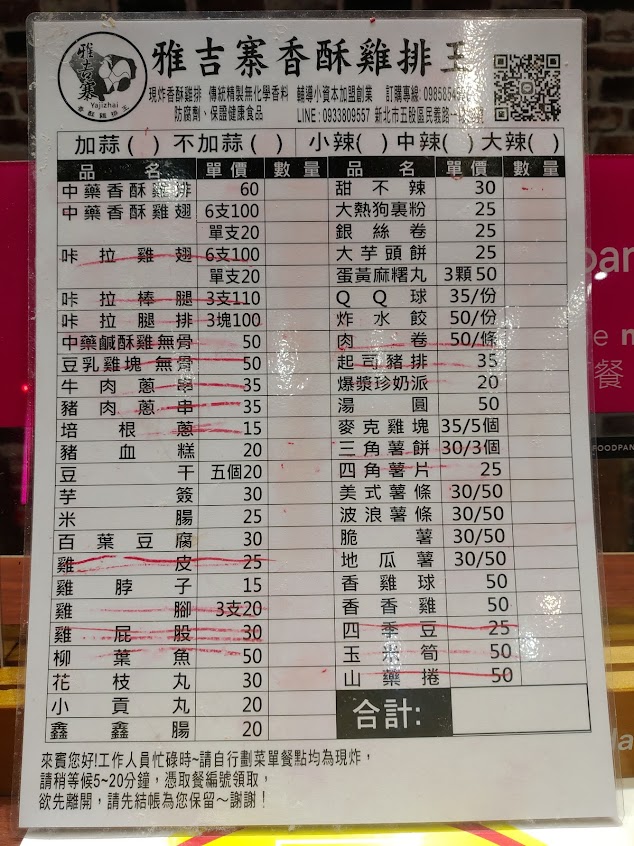 雅吉寨
Yajizhai
香酥雞排王
雅吉寨香酥雞排王
現炸香酥雞排 傳統精製無化學香料 輔導小資本加盟創業 訂購專線:
防腐劑、保證健康食品 LINE:0933809557 新北市五股區民義路一
加蒜( ) 不加蒜( ) 小辣( ) 中辣( ) 大辣( )
品名 單價 數量 品名 單價 數量
中藥香酥雞排 60 甜不辣 30
中藥香酥雞翅 6支100 大熱狗裹粉 25
單支20 銀絲卷 25
咔拉雞翅 6支100 大芋頭餅 25
單支20 蛋黃麻糬丸 3顆50
咔拉棒腿 3支110 QQ球 35/份
咔拉腿排 3塊100 炸水餃 50/份
中藥鹹酥雞無骨 50 肉卷 50/條
豆乳雞塊無骨 50 起司豬排 35
牛肉蔥串 35 爆漿珍奶派 20
豬肉蔥串 35 湯圓 50
培根蔥 15 麥克雞塊 35/5個
豬血糕 20 三角薯餅 30/3個
豆干 五個20 四角薯片 25
芋簽 30 美式薯條 30/50
米腸 25 波浪薯條 30/50
百葉豆腐 30 脆薯 30/50
雞皮 25 地瓜薯 30/50
雞脖子 15 香雞球 50
雞腳 3支20 香香雞 50
雞屁股 30 四季豆 25
柳葉魚 50 玉米筍 50
花枝丸 30 山藥捲 50
小貢丸 20 合計:
鑫鑫腸 20
來賓您好!工作人員忙碌時~請自行劃菜單餐點均為現炸,
請稍等候5~20分鐘,憑取餐編號領取,
欲先離開,請先結帳為您保留~謝謝!
餐
FOODPAN